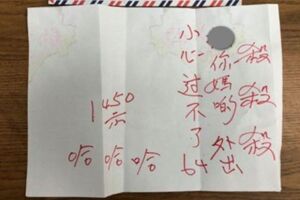 殺殺殺
你媽啲外出
小心过不了64
1450
示
哈哈哈